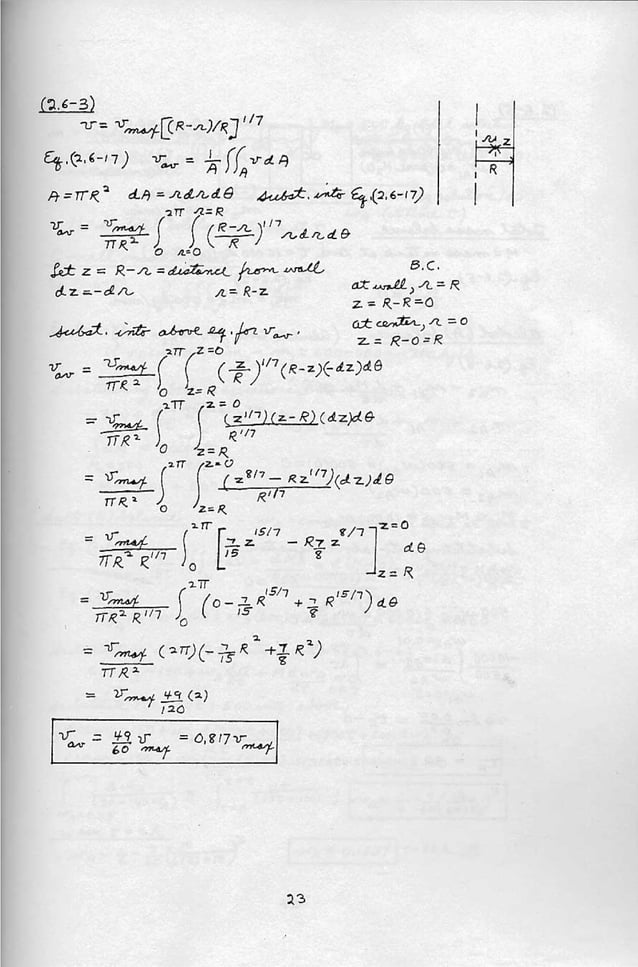 (2.6-3)
v = v_max [(R-r)/R]^1/7
Eq.(2.6-17) v_av = 1/A ∬_A v dA
r z
R
A = πR² dA = r dr dθ subst. into Eq.(2.6-17)
v_av = v_max/πR² ∫_0^2π ∫_r=0^r=R ((R-r)/R)^1/7 r dr dθ
Let z = R-r = distance from wall B.C.
dz = -dr r = R-z at wall, r = R
z = R-R = 0
subst. into above eq. for v_av. at center, r = 0
z = R-0 = R
v_av = v_max/πR² ∫_0^2π ∫_z=R^z=0 (z/R)^1/7 (R-z)(-dz)dθ
= v_max/πR² ∫_0^2π ∫_z=R^z=0 (z^1/7)(z-R)/R^1/7 (dz)dθ
= v_max/πR² ∫_0^2π ∫_z=R^z=0 (z^8/7 - Rz^1/7)/R^1/7 (dz)dθ
= v_max/πR² R^1/7 ∫_0^2π [7/15 z^15/7 - R 7/8 z^8/7]_z=R^z=0 dθ
= v_max/πR² R^1/7 ∫_0^2π (0 - 7/15 R^15/7 + 7/8 R^15/7) dθ
= v_max/πR² (2π)(-7/15 R² + 7/8 R²)
= v_max 49/120 (2)
v_av = 49/60 v_max = 0.817 v_max
23